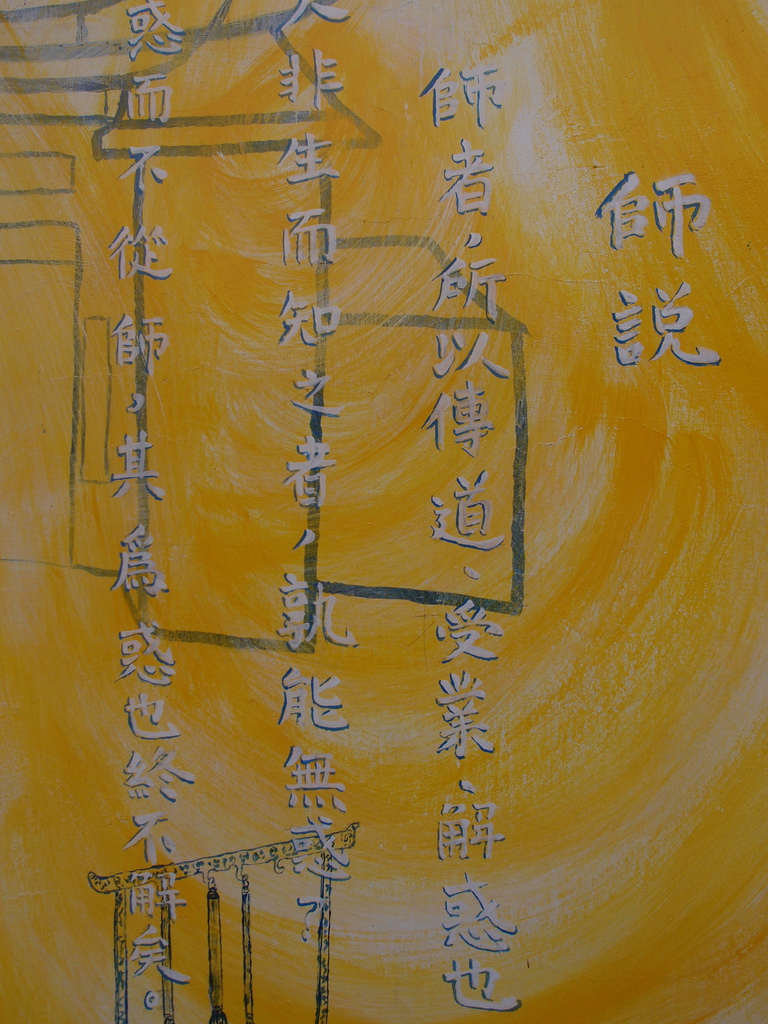 師説
師者，所以傳道、受業、解惑也
人非生而知之者，孰能無惑？
惑而不從師，其為惑也終不解矣。